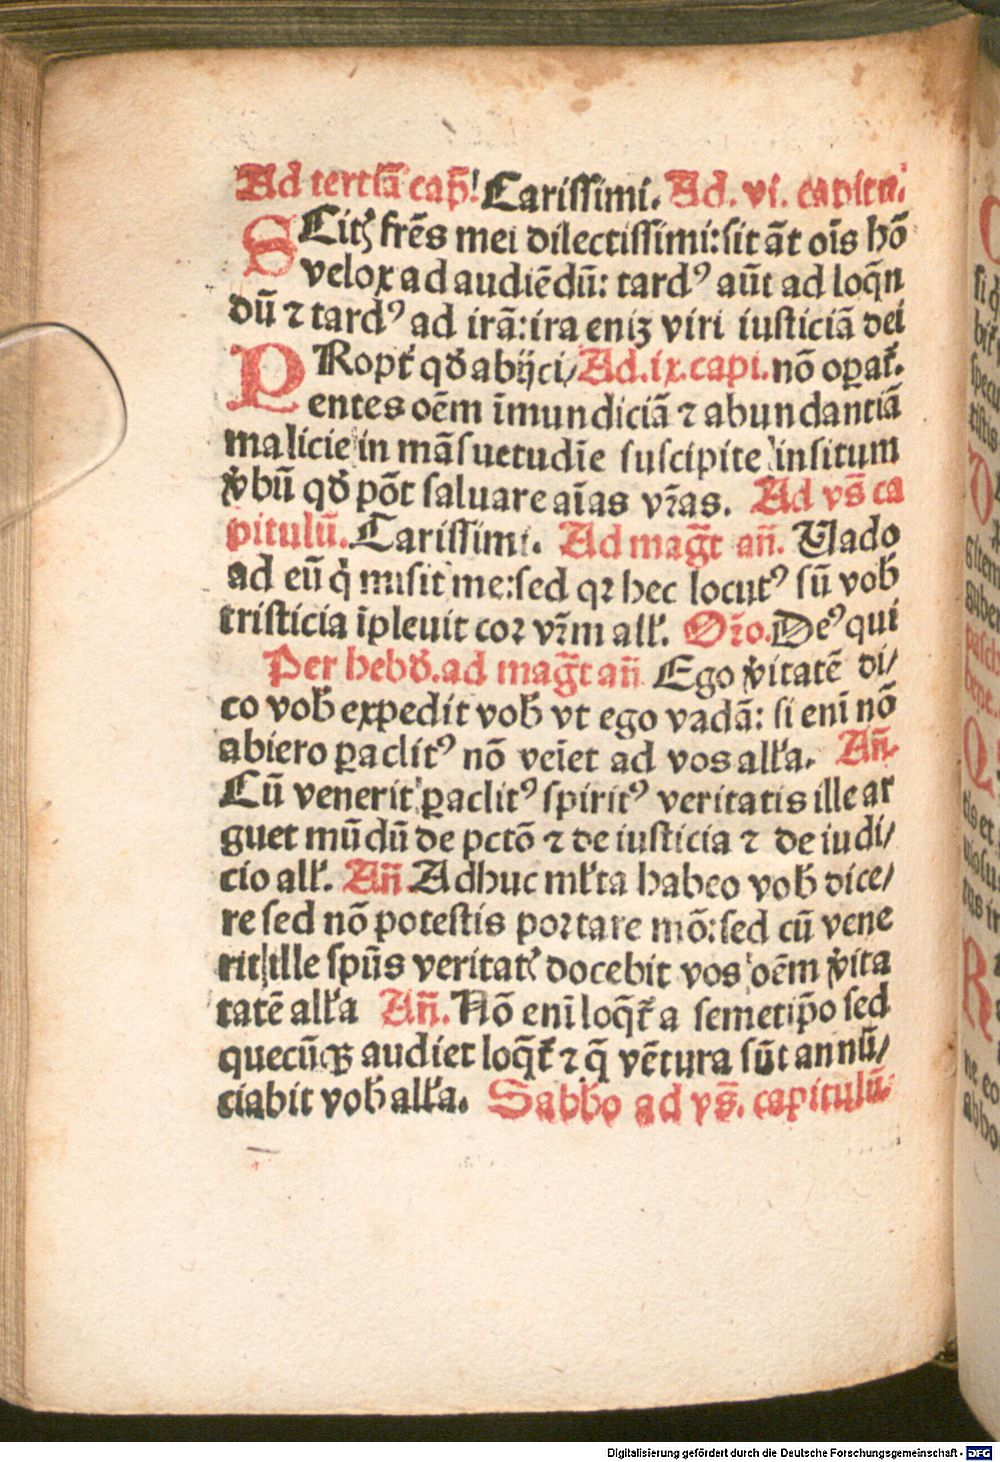 Ad tertiã cap̃! Carissimi. Ad. vi. capitu.
SCitꝫ frēs mei dilectissimi: sit ãt oīs hõ
velox ad audiēdũ: tardꝰ aũt ad loq̃n
dũ ⁊ tardꝰ ad irã: ira eniꝫ viri iusticiã dei
PRopt̃ qd̓ abijci/ Ad. ix. capi. nõ oꝑat̃.
entes oēm īmundiciã ⁊ abundantiã
malicie in mãsuetudīe suscipite insitum
v̓bũ qd̓ põt saluare aīas vr̃as. Ad vs̃ ca
pitulũ. Carissimi. Ad mag̃t añ. Uado
ad eũ q̓ misit me: sed qꝛ hec locutꝰ sũ vob̓
tristicia īpleuit coꝛ vr̃m all̓. Oꝛ̃o. Deꝰ qui
Per hebd̓. ad mag̃t añ Ego v̓itatē di/
co vob̓ expedit vob̓ vt ego vadã: si enī nõ
abiero ꝑaclitꝰ nõ veīet ad vos all̓a. Añ.
Cũ venerit ꝑaclitꝰ spiritꝰ veritatis ille ar
guet mũdũ de pctõ ⁊ de iusticia ⁊ de iudi/
cio all̓. Añ. Adhuc ml̓ta habeo vob̓ dice/
re sed nõ potestis poꝛtare mõ: sed cũ vene
rit ille spũs veritat̓ docebit vos oēm v̓ita
tatē all̓a Añ. Nõ enī loq̃t̃ a semetip̃o sed
quecũqꝫ audiet loq̃t̃ ⁊ q̃ vētura sũt annũ/
ciabit vob̓ all̓a. Sabb̓o ad vs̃. capitulũ.
Digitalisierung gefördert durch die Deutsche Forschungsgemeinschaft - DFG